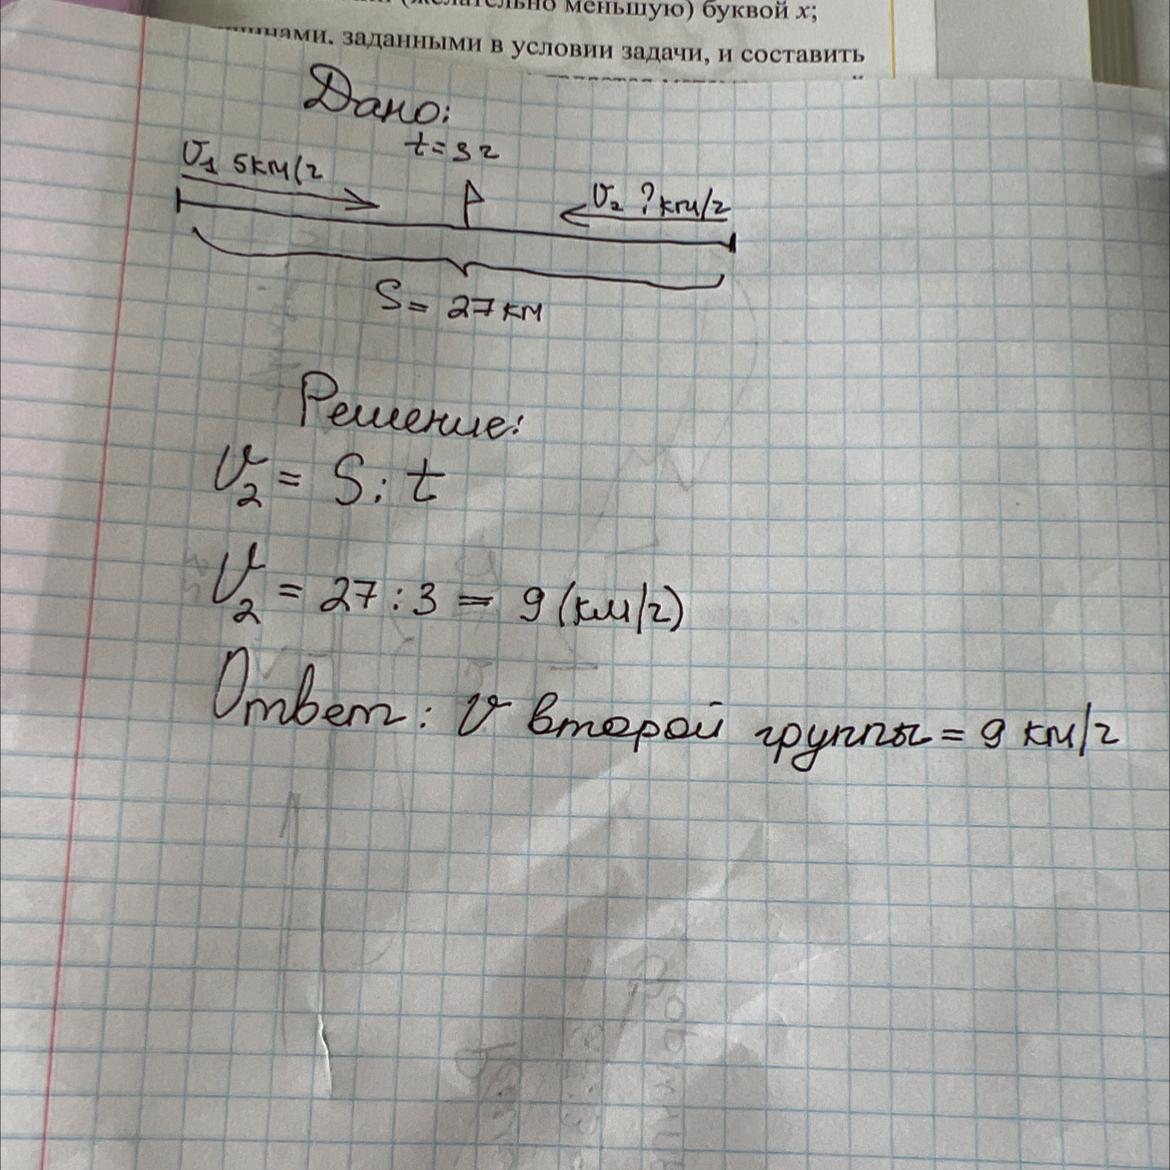 (желательно меньшую) буквой x;
заданными в условии задачи, и составить
Дано:
t=3ч
V₁ 5км/ч
V₂ ?км/ч
S= 27км
Решение:
V₂= S:t
V₂= 27:3= 9(км/ч)
Ответ: V второй группы= 9 км/ч